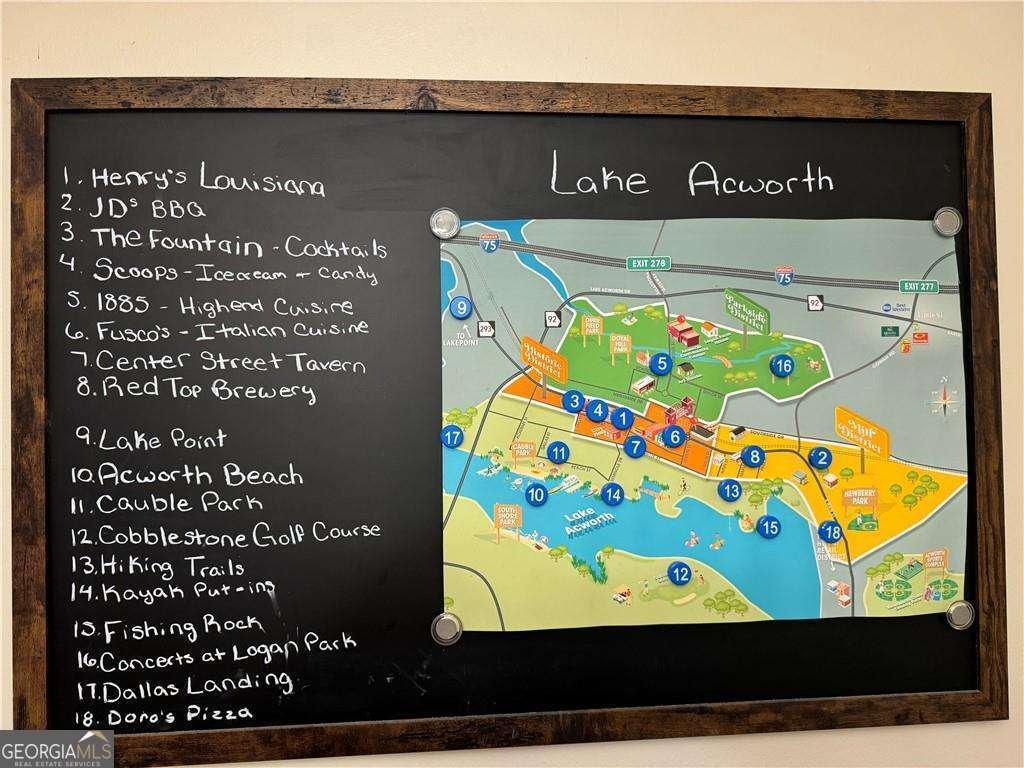 Lake Acworth
1. Henry's Louisiana
2. JDs BBQ
3. The Fountain - Cocktails
4. Scoops - Icecream + Candy
5. 1885 - Highend Cuisine
6. Fusco's - Italian Cuisine
7. Center Street Tavern
8. Red Top Brewery
9. Lake Point
10. Acworth Beach
11. Cauble Park
12. Cobblestone Golf Course
13. Hiking Trails
14. Kayak Put-ins
15. Fishing Rock
16. Concerts at Logan Park
17. Dallas Landing
18. Doro's Pizza
75
EXIT 278
75
EXIT 277
LAKE ACWORTH DR
92
92
293
9
TO
LAKEPOINT
Parkside
District
Historic
District
Mill
District
DOYAL
HILL
PARK
Best
Western
5
16
3
4
1
7
6
8
2
17
11
10
14
13
15
18
12
CAUBLE
PARK
NEWBERRY
PARK
SOUTH
SHORE
PARK
Lake
Acworth
ACWORTH
SPORTS
COMPLEX
GEORGIAMLS
REAL ESTATE SERVICES